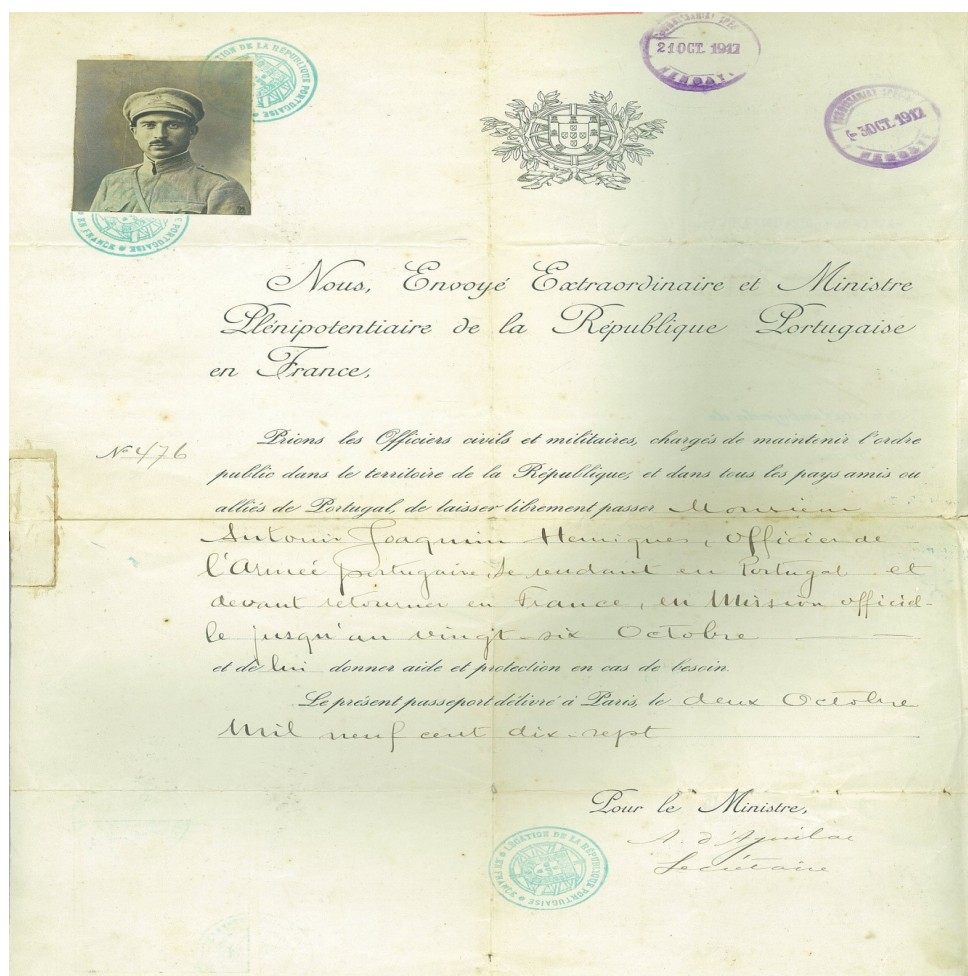 LÉGATION DE LA RÉPUBLIQUE PORTUGAISE
EN FRANCE
21 OCT. 1917
HENDAYE
3 OCT. 1917
HENDAYE
Nous, Envoyé Extraordinaire et Ministre
Plénipotentiaire de la République Portugaise
en France,
Nº 476
Prions les Officiers civils et militaires, chargés de maintenir l'ordre
public dans le territoire de la République, et dans tous les pays amis ou
alliés de Portugal, de laisser librement passer Monsieur
Antonio Joaquim Henriques, Officier de
l'Armée portugaise, se rendant en Portugal et
devant retourner en France, en Mission officiel-
le jusqu'au vingt-six Octobre
et de lui donner aide et protection en cas de besoin.
Le présent passeport délivré à Paris, le deux Octobre
Mil neuf cent dix-sept
Pour le Ministre,
A. d'Aguilar
Secrétaire
LÉGATION DE LA RÉPUBLIQUE PORTUGAISE EN FRANCE